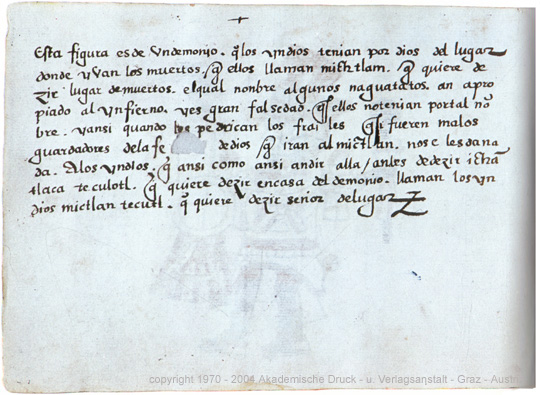 +
Esta figura es de Un demonio. q̃ los yndios tenian por dios del lugar
donde yvan los muertos. q̃ ellos llaman mictlam. q̃ quiere de
zir lugar de muertos. el qual nonbre algunos naguatatos. an apro
piado al ynfierno. yes gran falsedad. q̃ ellos no tenian por tal nõ
bre. yansi quando les pedrican los frailes q̃ si fueren malos
guardadores de la fe de dios q̃ iran al mictlan. nose les da na
da. A los yndios. q̃ ansi como ansi an dir alla / an les de dezir
tlaca teculotl. q̃ quiere dezir en casa del demonio. llaman los yn
dios mictlan tecutl. q̃ quiere dezir señor del lugar
copyright 1970 - 2004 Akademische Druck - u. Verlagsanstalt - Graz - Austri